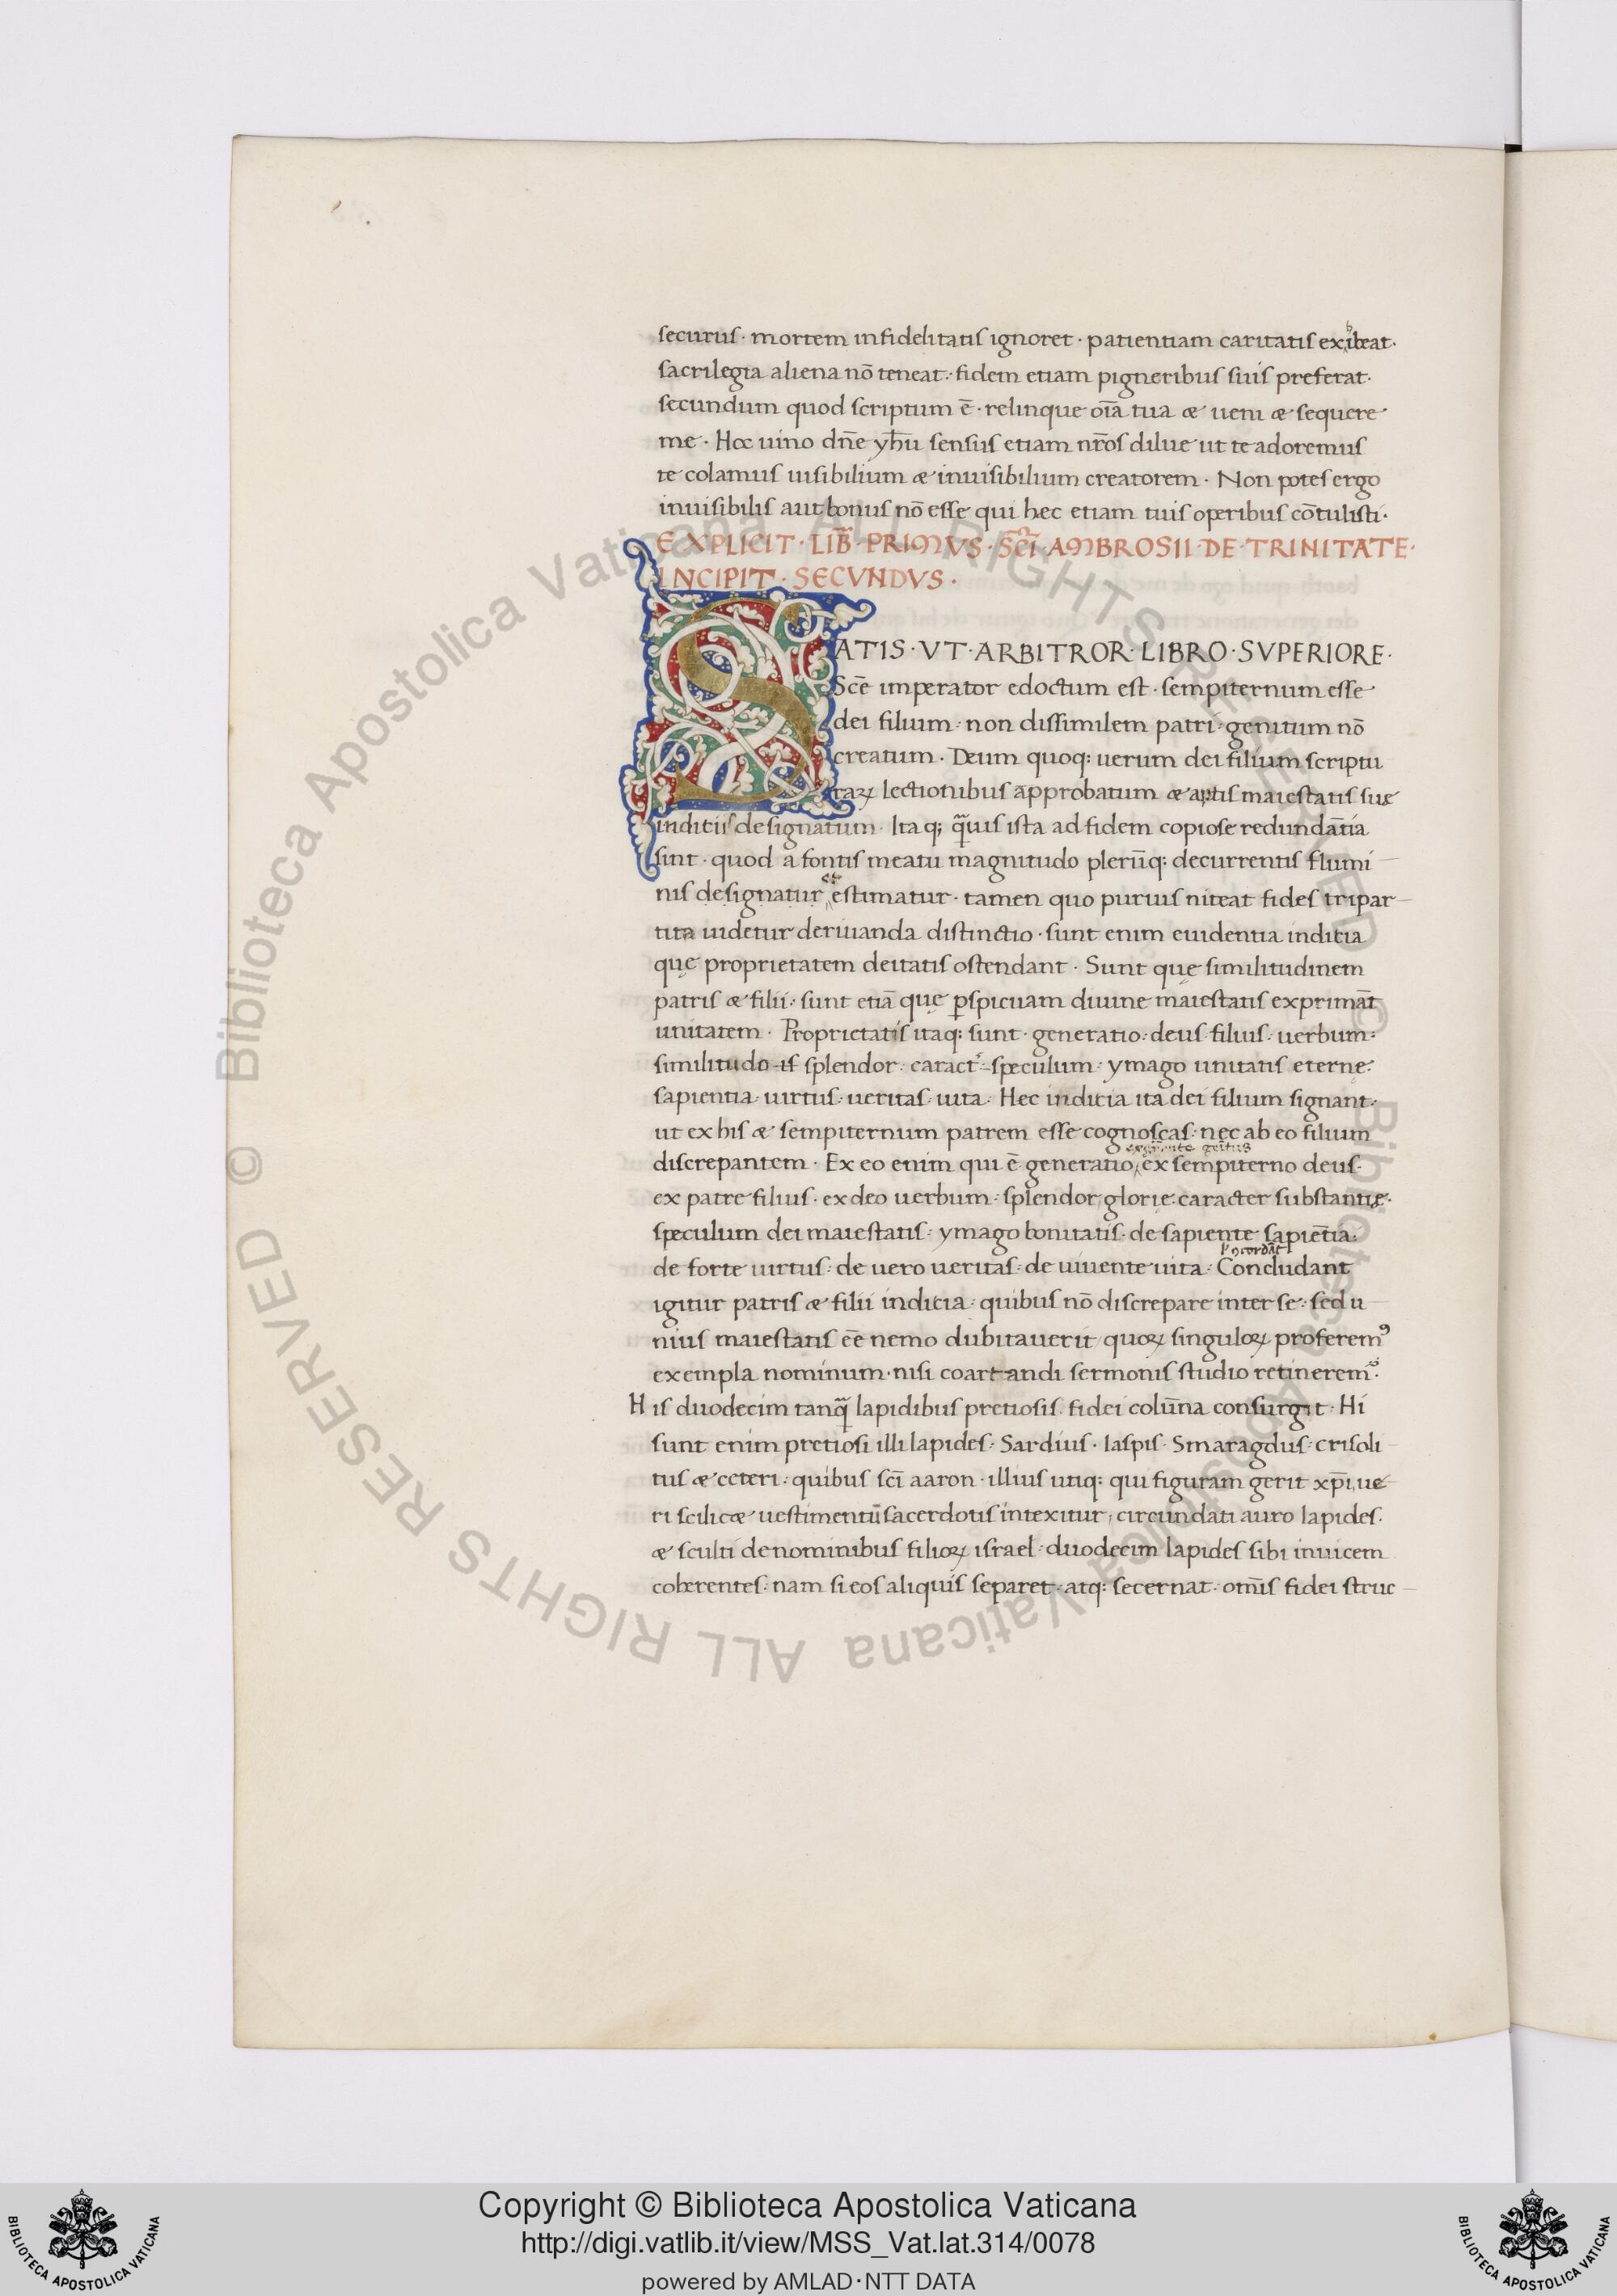 securus · mortem infidelitatis ignoret · patientiam caritatis exhibeat ·
sacrilegia aliena nō teneat : fidem etiam pigneribus suis preferat ·
secundum quod scriptum ē · relinque oīa tua æ ueni æ sequere
me · Hoc uino dn̄e yhū sensus etiam nr̄os dilue ut te adoremus
te colamus uisibilium æ inuisibilium creatorem · Non potes ergo
inuisibilis aut bonus nō esse qui hec etiam tuis operibus cōtulisti ·
EXPLICIT · LIB̄ · PRIMVS · SC̄I · AMBROSII · DE · TRINITATE ·
INCIPIT · SECVNDVS ·
SATIS · VT · ARBITROR · LIBRO · SVPERIORE ·
Sc̄e imperator edoctum est · sempiternum esse
dei filium · non dissimilem patri · genitum nō
creatum · Deum quoq: uerum dei filium scriptu
raꝝ lectionibus approbatum æ aptis maiestatis suę
inditiis designatum · Itaq; q̄uis ista ad fidem copiose redundātia
sint · quod a fontis meatu magnitudo plerūq: decurrentis flumi
nis designatur et estimatur · tamen quo purius niteat fides tripar
tita uidetur deriuanda distinctio · sunt enim euidentia inditia
quę proprietatem deitatis ostendant · Sunt quę similitudinem
patris æ filii : sunt etiā quę ꝑspicuam diuine maiestatis exprimāt
unitatem · Proprietatis itaq: sunt · generatio : deus · filius : uerbum :
similitudo is splendor · caract᷑ · speculum · ymago unitatis eternę :
sapientia · uirtus : ueritas · uita · Hec inditia ita dei filium signant :
ut ex his æ sempiternum patrem esse cognoscas · nec ab eo filium
discrepantem · Ex eo enim qui ē generatio, ex sempiterno deus ·
ex patre filius · ex deo uerbum : splendor glorię caracter substantię ·
speculum dei maiestatis : ymago bonitatis · de sapiente sapiētia :
de forte uirtus : de uero ueritas : de uiuente uita · Concludant
igitur patris æ filii inditia : quibus nō discrepare inter se : sed u
nius maiestatis eē nemo dubitauerit quoꝝ singuloꝝ proferemꝰ
exempla nominum · nisi coartandi sermonis studio retineremꝰ ·
His duodecim tanq̄ lapidibus pretiosis fidei colūna consurgit · Hi
sunt enim pretiosi illi lapides · Sardius · Iaspis · Smaragdus : crisoli
tus æ ceteri : quibus sc̄i aaron · illius utiq: qui figuram gerit xp̄i, ue
ri scilicæ uestimentū sacerdotis intexitur, circundati auro lapides ·
æ sculti de nominibus filioꝝ israel : duodecim lapides sibi inuicem
coherentes : nam si eos aliquis separet · atq: secernat · om̄is fidei struc
© Biblioteca Apostolica Vaticana ALL RIGHTS RESERVED © Biblioteca Apostolica Vaticana ALL RIGHTS RESERVED
Copyright © Biblioteca Apostolica Vaticana
http://digi.vatlib.it/view/MSS_Vat.lat.314/0078
powered by AMLAD·NTT DATA
BIBLIOTECA APOSTOLICA VATICANA
BIBLIOTECA APOSTOLICA VATICANA